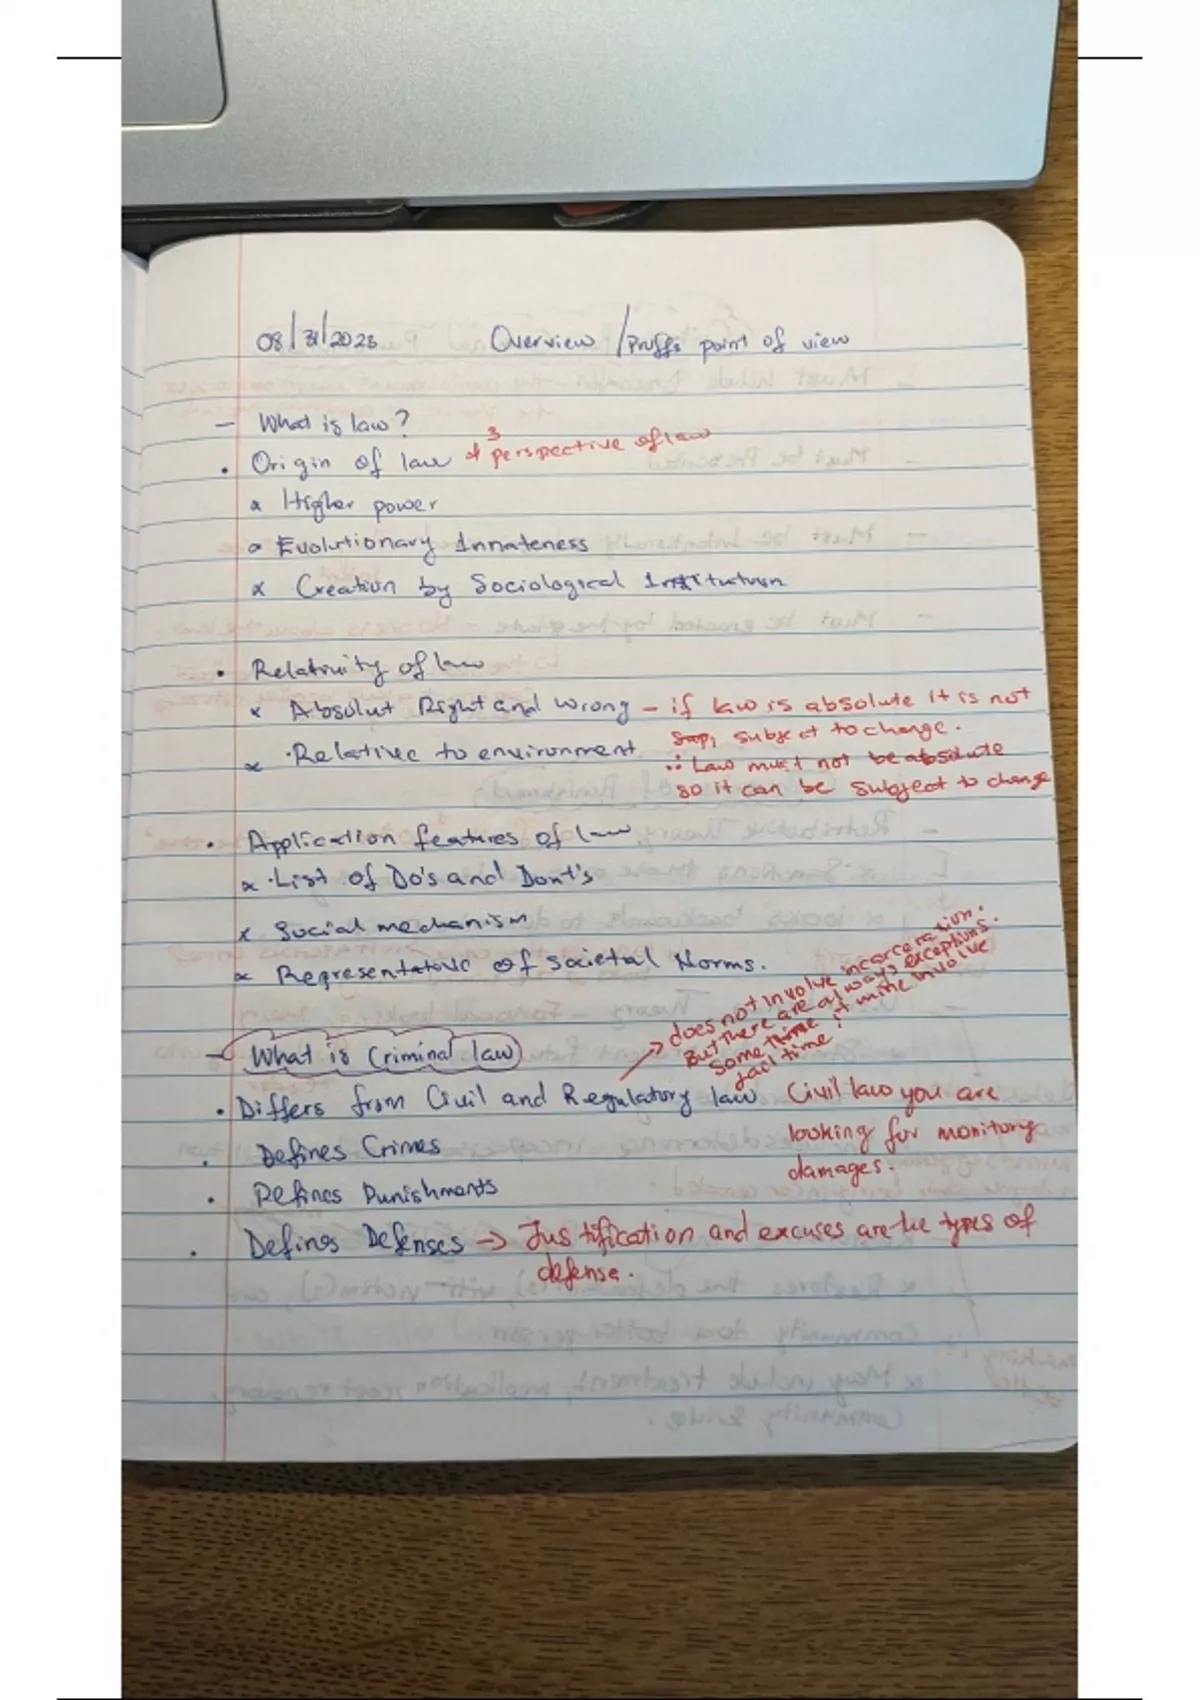 08/31/2023 Overview / Proffs point of view
- What is law?
• Origin of law * 3 perspective of law
× Higher power
× Evolutionary Innateness
× Creation by Sociological Institution
• Relativity of law
× Absolut Right and Wrong – if law is absolute it is not
subject to change.
× Relative to environment
∴ Law must not be absolute
so it can be subject to change
• Application features of law
× List of Do's and Dont's
× Social mechanism
× Representative of societal Norms.
- What is Criminal law
→ does not involve incarceration.
But there are always exceptions.
Sometime it might involve
jail time
• Differs from Civil and Regulatory law Civil law you are
looking for monitory
damages.
• Defines Crimes
• Defines Punishments
• Defines Defenses → Justification and excuses are the types of
defense.